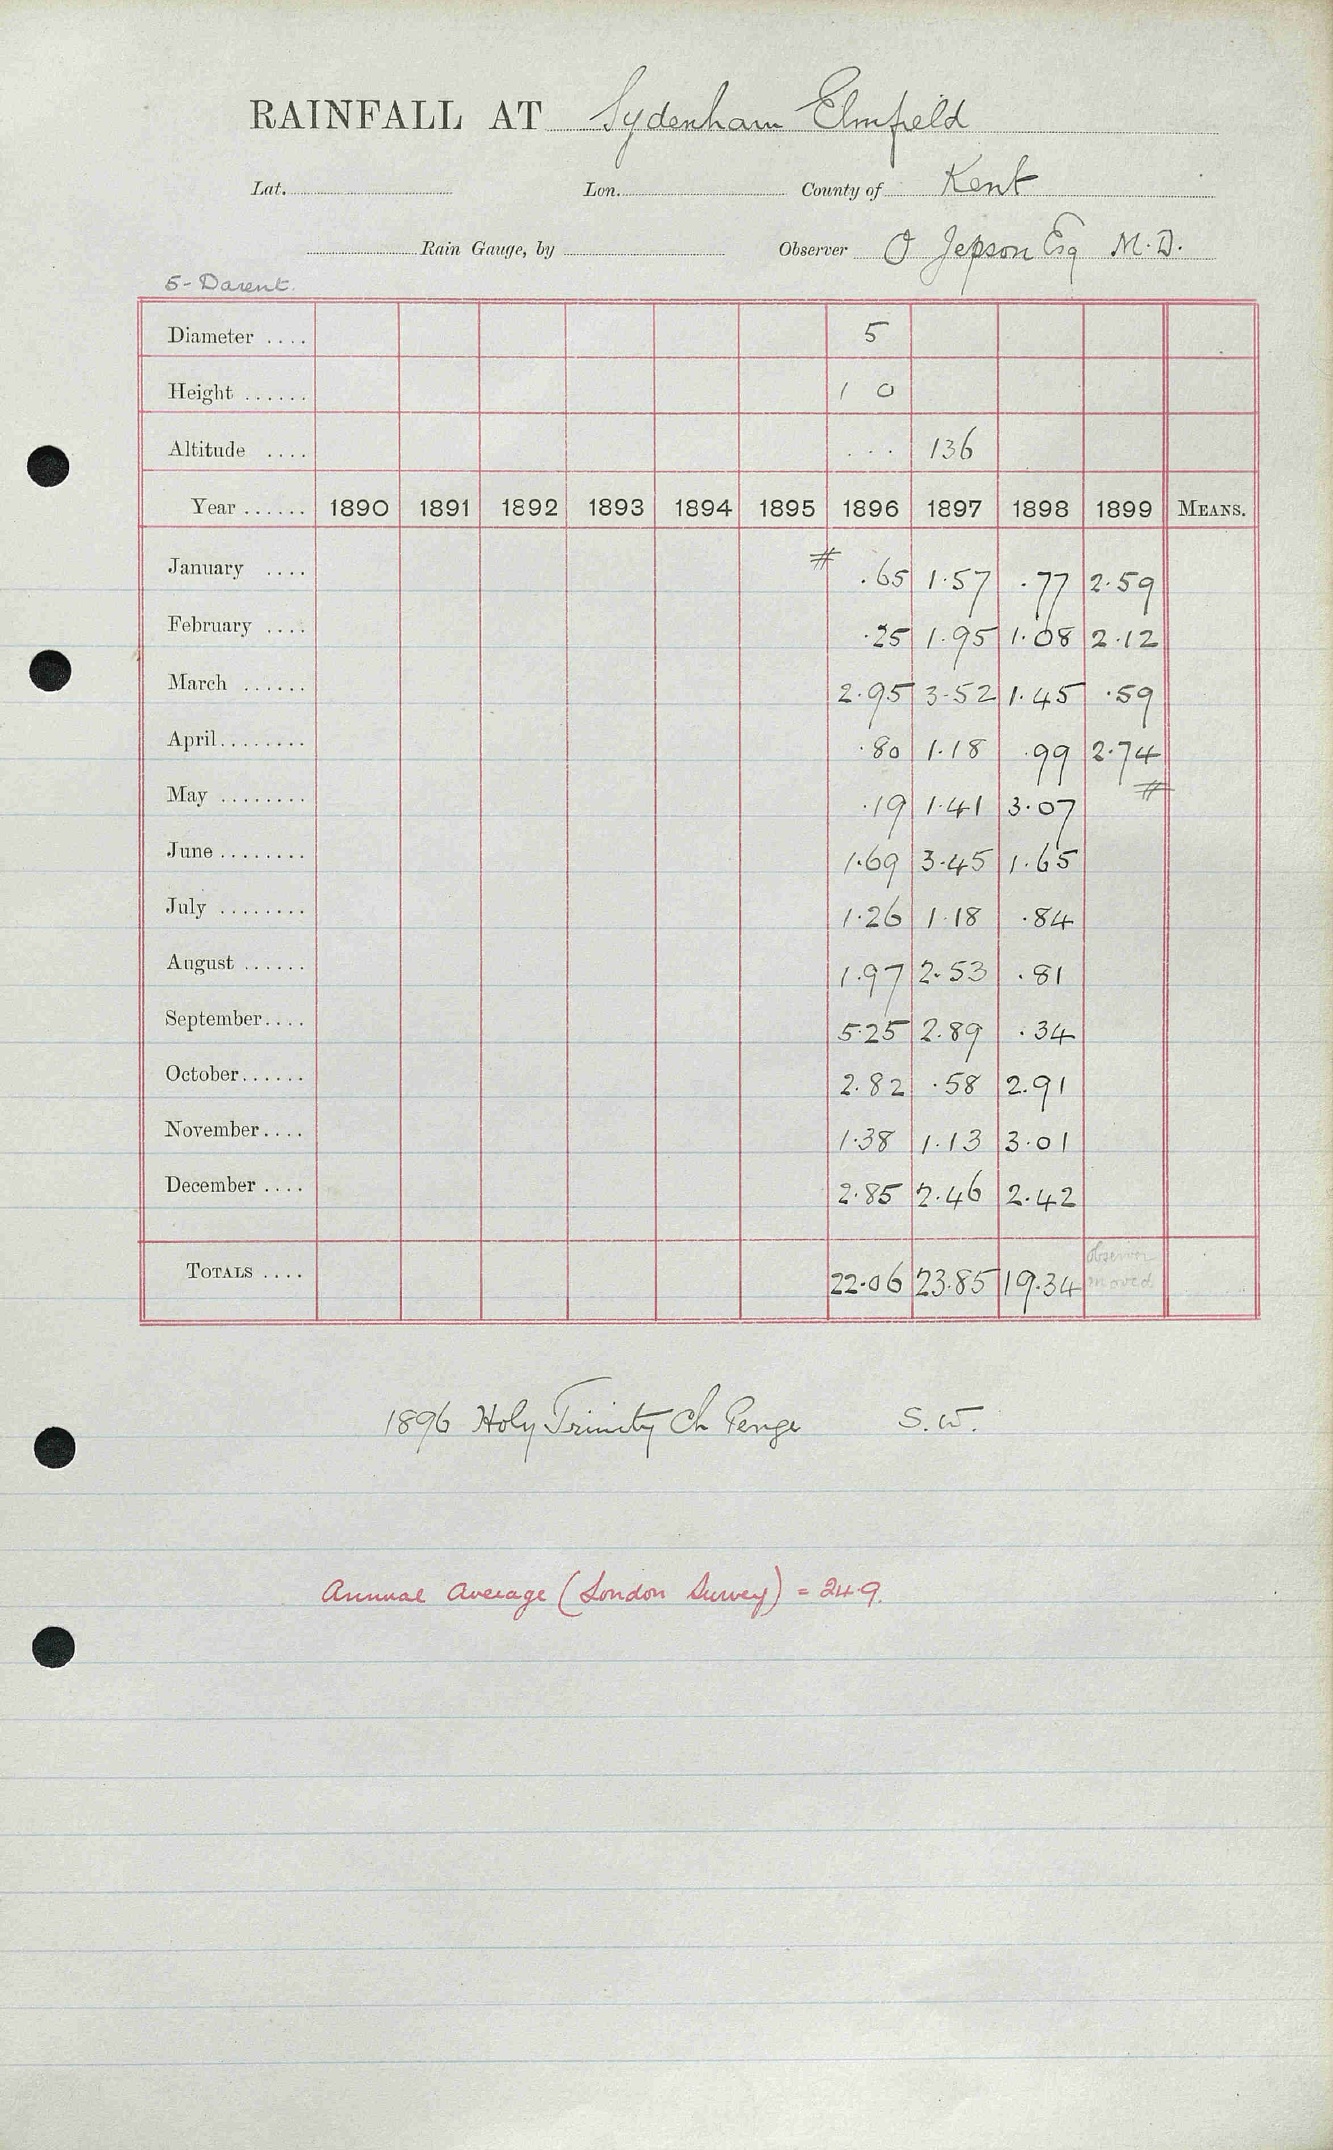 RAINFALL AT Sydenham Elmfield
Lat. Lon. County of Kent
Rain Gauge, by Observer O Jepson Esq M.D.
5 - Darent.
Diameter .... 5
Height ...... 1 0
Altitude .... ... 136
Year ...... 1890 1891 1892 1893 1894 1895 1896 1897 1898 1899 MEANS.
January .... # .65 1.57 .77 2.59
February .... .25 1.95 1.08 2.12
March ...... 2.95 3.52 1.45 .59
April ........ .80 1.18 .99 2.74
May ........ .19 1.41 3.07 #
June ........ 1.69 3.45 1.65
July ........ 1.26 1.18 .84
August ...... 1.97 2.53 .81
September .... 5.25 2.89 .34
October ...... 2.82 .58 2.91
November .... 1.38 1.13 3.01
December .... 2.85 2.46 2.42
TOTALS .... 22.06 23.85 19.34 observer moved
1896 Holy Trinity Ch Penge S.W.
Annual Average (London Survey) = 24.9.